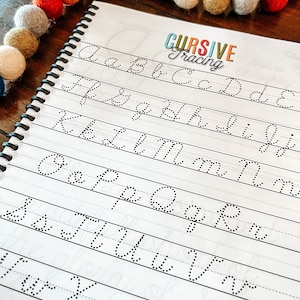 CURSIVE
Tracing
Aa Bb Cc Dd E
Ff Gg Hh Ii Jj
Kk Ll Mm Nn
Oo Pp Qq Rr
Ss Tt Uu Vv